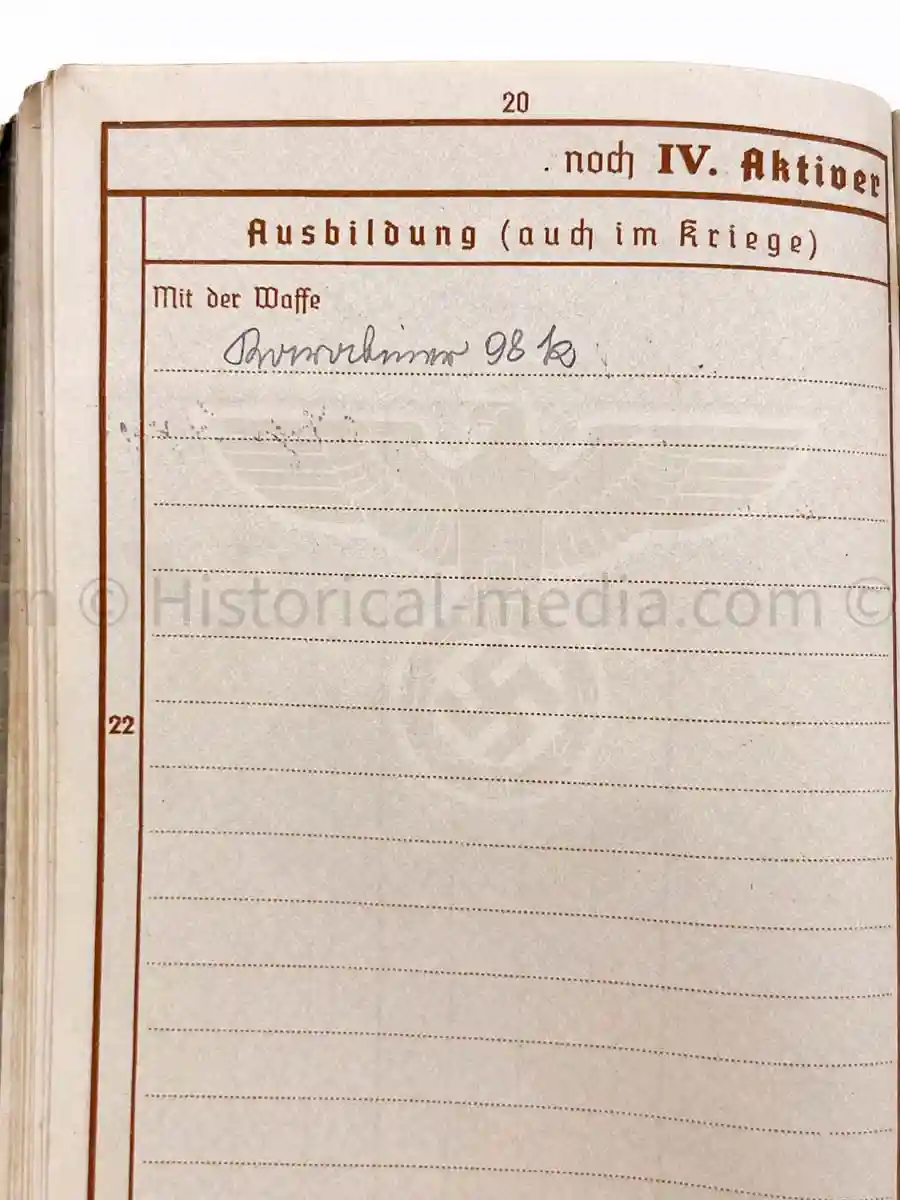 20
. noch IV. Aktiver
Ausbildung (auch im Kriege)
Mit der Waffe
Karabiner 98 k
m © Historical-media.com ©
22